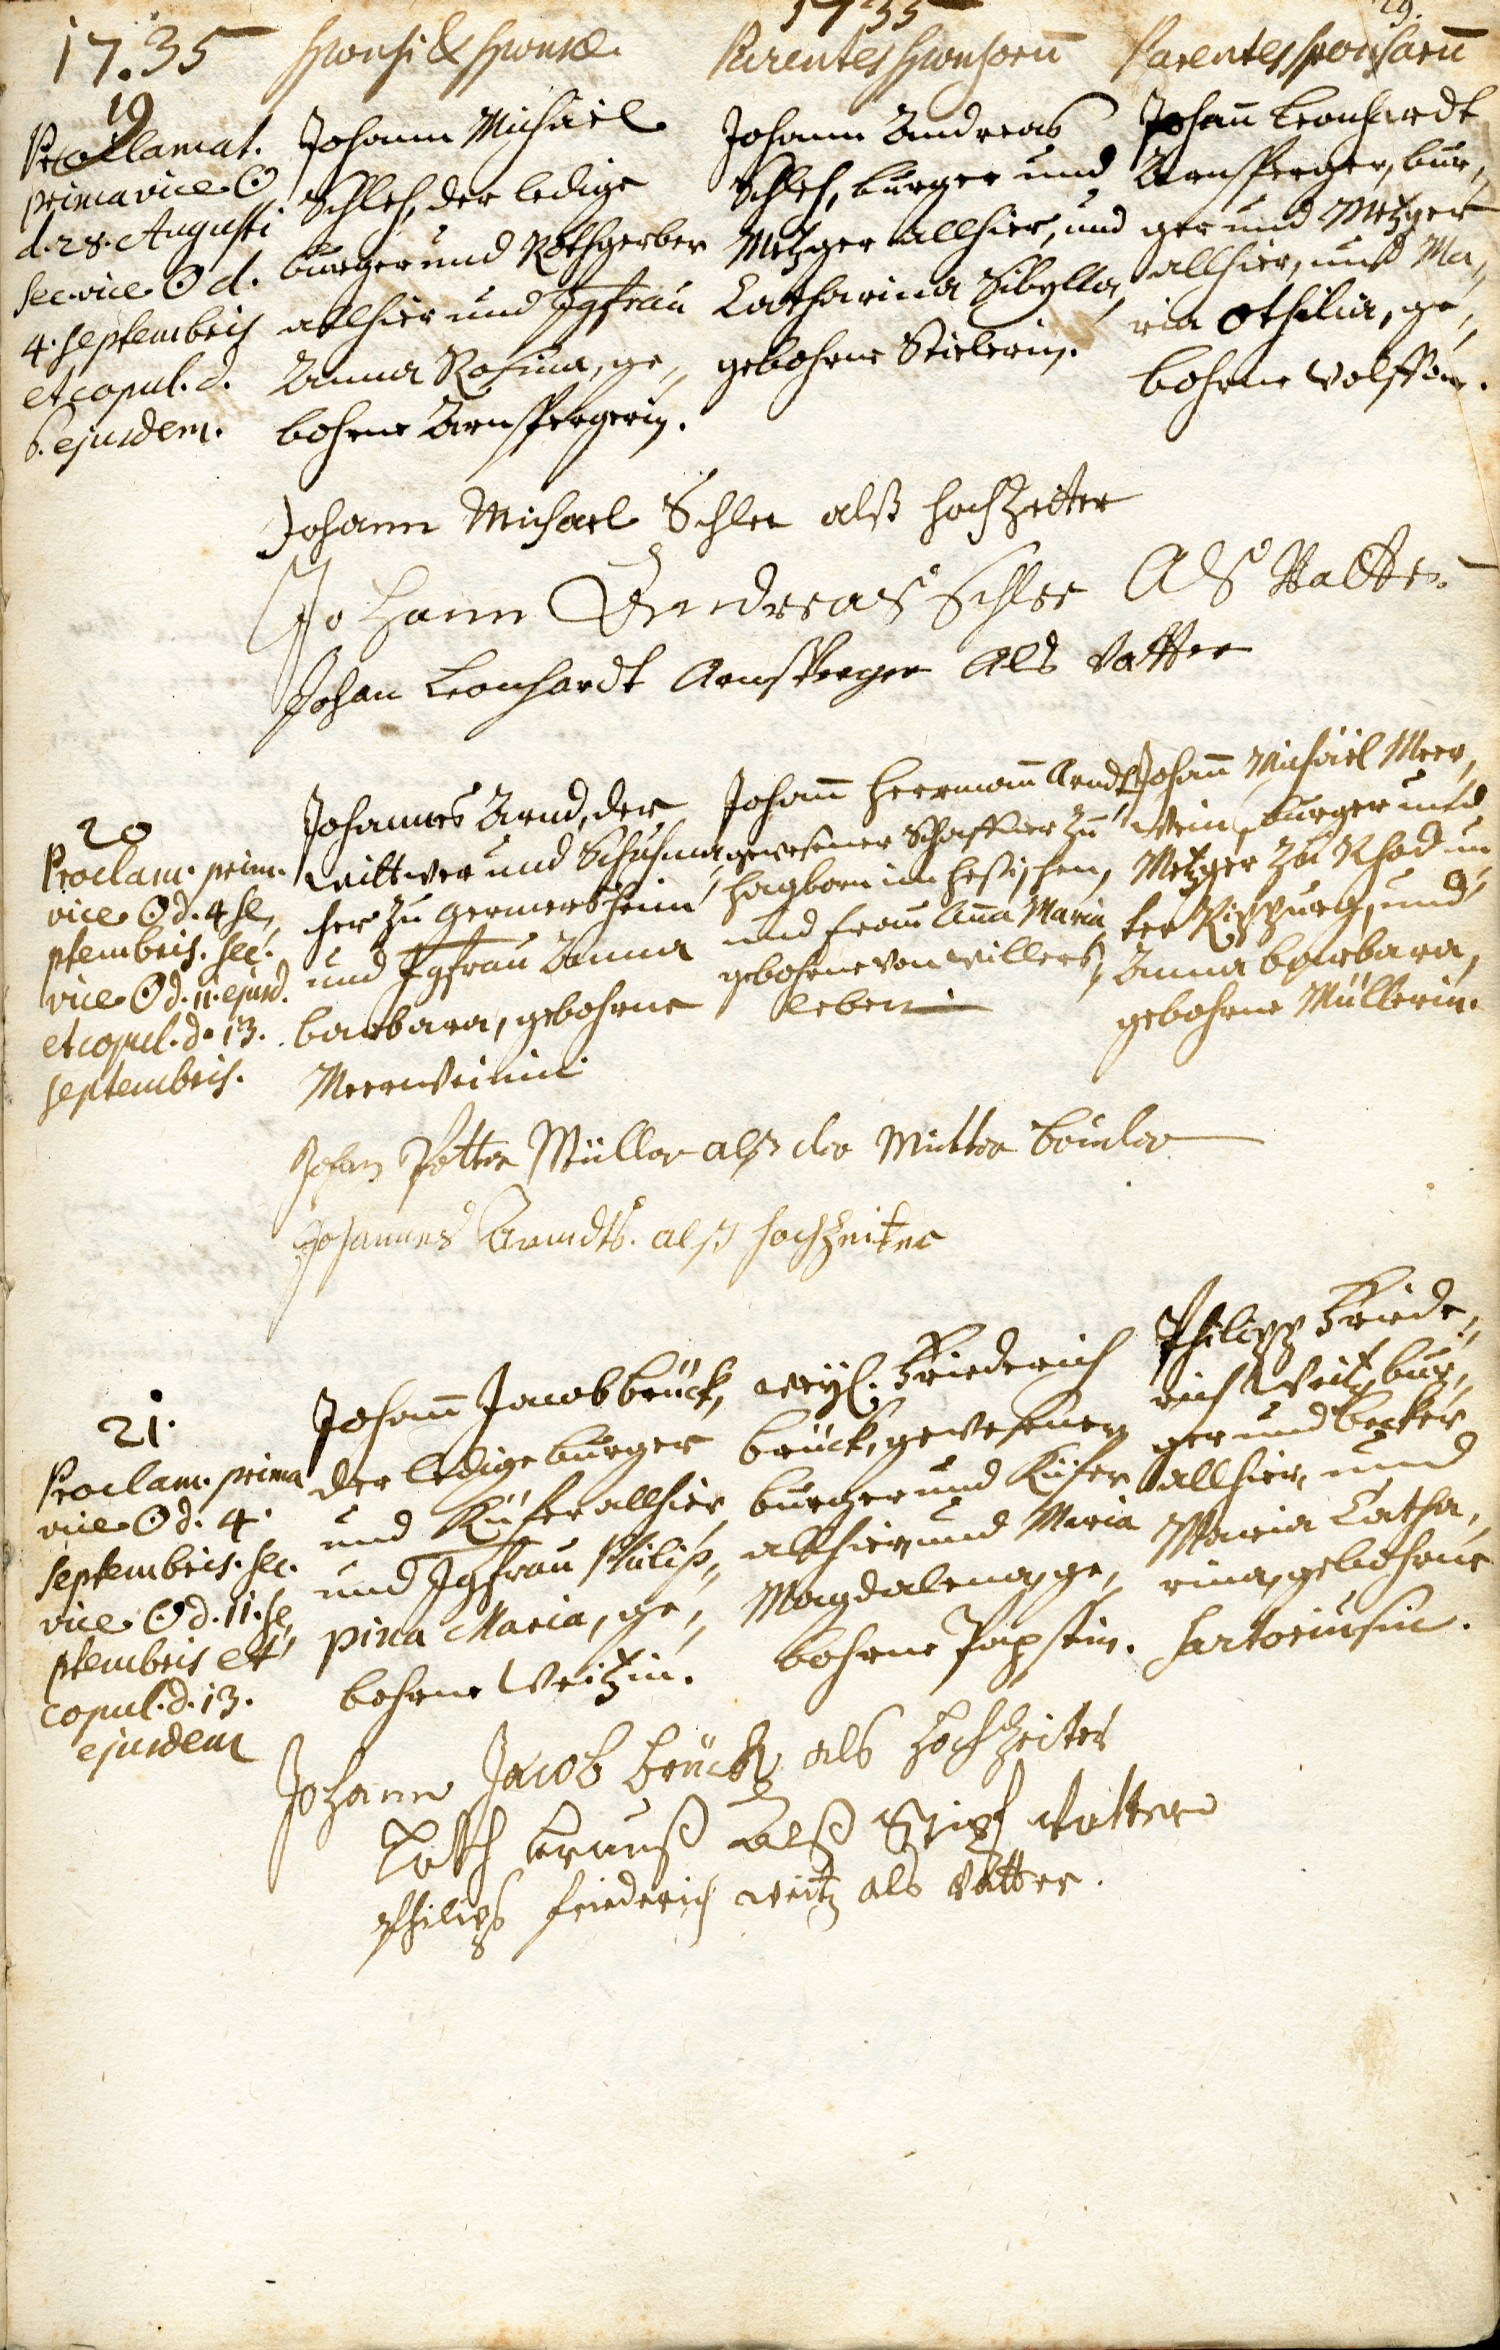 1735
29.
17.35
Sponsi & Sponsæ.
Parentes Sponsorū
Parentes Sponsarū
19
Proclamat.
prima vice ☉
d. 28. Augusti
sec. vice ☉ d.
4. Septembris
et copul. d.
6. ejusdem.
Johann Michäel
Schleh, der ledige
burger und Rothgerber
allhier und Jgfrau
Anna Rosina, ge„
bohrne Arnspergerin.
Johann Andreas
Schleh, burger und
Metzger allhier, und
Catharina Sibylla,
gebohrne Stieberin.
Johañ Leonhardt
Arnsperger, bur„
ger und Metzger
allhier, und Ma„
ria Othilia, ge„
bohrne Wolffin.
Johann Michael Schlee alß hochzeitter
Johann Andreas Schlee Als Vatter
Johan Leonhardt Arnsperger Als Vatter
20
Proclam. prim.
vice ☉ d. 4 Se„
ptembris. sec.
vice ☉ d. 11. ejusd.
et copul. d. 13.
Septembris.
Johannes Arnd, der
wittwer und Schuhma„
cher zu Germersheim
und Jgfrau Anna
barbara, gebohrne
Meerweinin
Johañ Herrmañ Arndt
gewesener Schaffner zu
Hagborn im Heßischen,
und Frau Aña Maria
gebohrne von Willers„
leben
Johañ Michäel Meer„
wein, burger und
Metzger zu Rhod un„
ter Rippurg, und
Anna barbara,
gebohrne Müllerin.
Johan Petter Müller alß der Mutter bruder
Johannes Arndts. alß hochzeiter
21.
Proclam. prima
vice ☉ d. 4.
Septembris. sec.
vice ☉ d. 11. Se„
ptembris et
copul. d. 13.
ejusdem
Johañ Jacob brück,
der ledige burger
und Küfer allhier,
und Jgfrau Philip„
pina Maria, ge„
bohrne Weitzin.
weyl. Friederich
brück, gewesenen
burger und Küfer
allhier, und Maria
Magdalena, ge„
bohrne Papstin.
Philipp Friede„
rich Weitz, bur„
ger und becker
allhier, und
Maria Catha„
rina, gebohrne
Sartoriusin.
Johann Jacob brück als hochzeiter
Krauß Alß Stipf Vatter
Philips friederich weitz als Vatter.